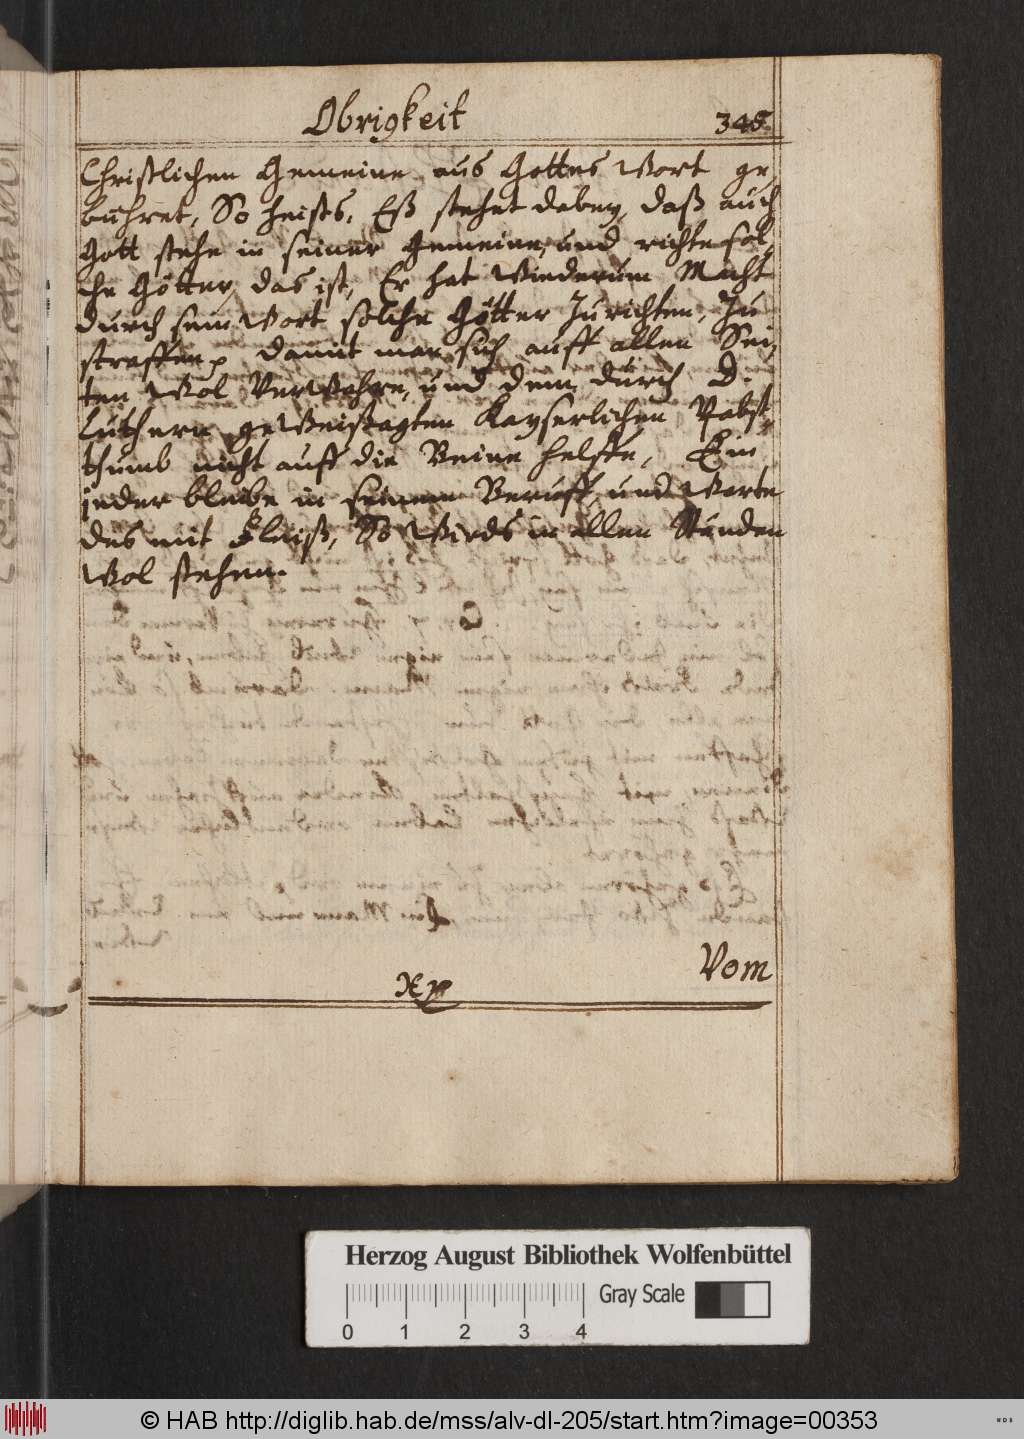 Obrigkeit 345
Christlichen Gemeine aus Gottes Wort ge,
bühret, So heists, Eß stehet dabey, daß auch
Gott stehe in seiner Gemeine, und richte sol,
che Götter, das ist, Er hat Wiederum Macht
durch sein Wort solche Götter Zurichten, Zu
straffen, damit man sich auff allen Sei,
ten Wol Verwahre, und dem durch D.
Luthern geWeissagten Kayserlichen Pabst,
thumb nicht auff die Beine helffe, Ein
jeder bleibe in seinem Beruff, und Warte
des mit Fleiß, So Wirds in allen Ständen
Wol stehen.
Vom
Herzog August Bibliothek Wolfenbüttel
Gray Scale
0 1 2 3 4
© HAB http://diglib.hab.de/mss/alv-dl-205/start.htm?image=00353